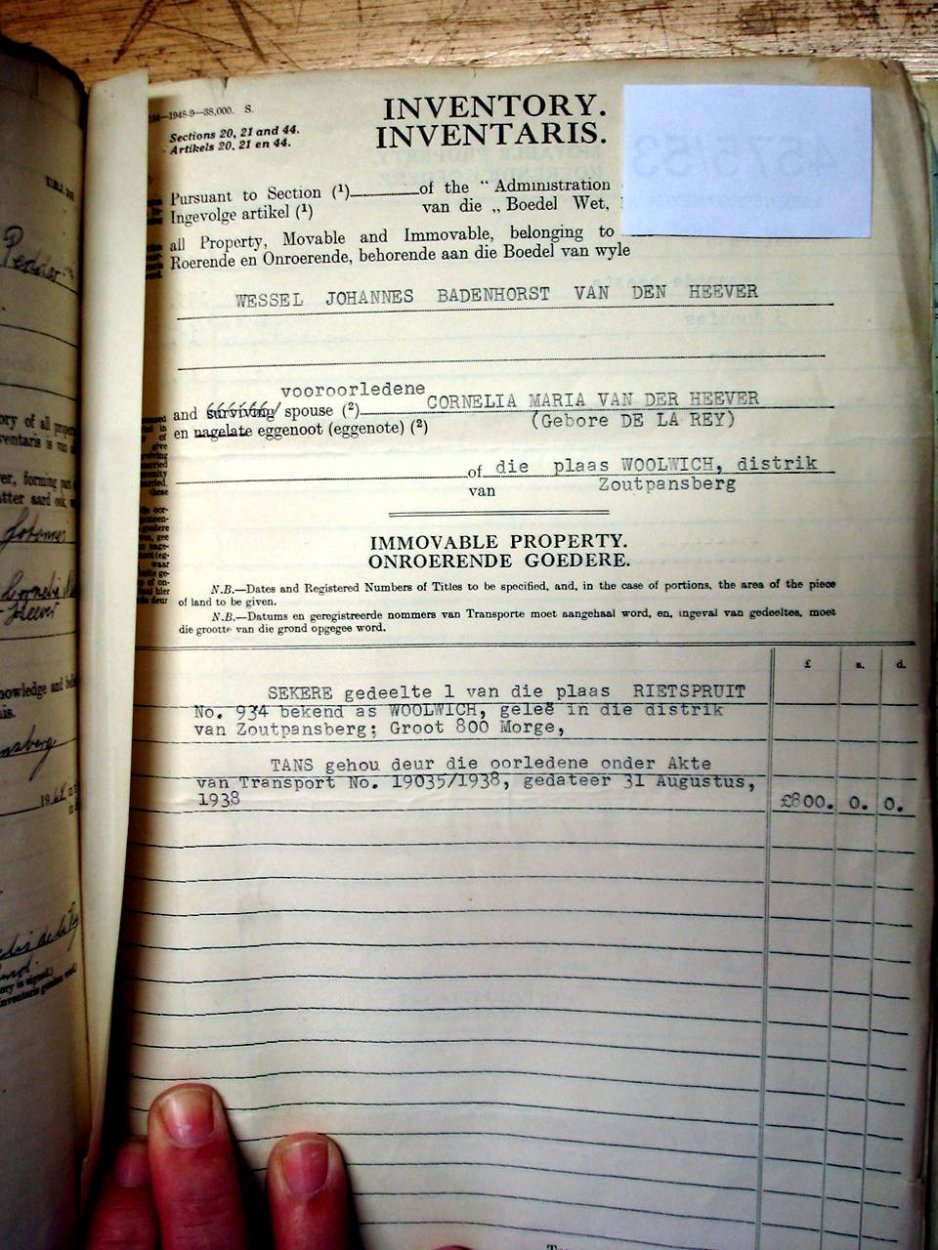 1948-9—38,000. S.
Sections 20, 21 and 44.
Artikels 20, 21 en 44.
INVENTORY.
INVENTARIS.
Pursuant to Section (¹) of the "Administration
Ingevolge artikel (¹) van die „Boedel Wet,
all Property, Movable and Immovable, belonging to
Roerende en Onroerende, behorende aan die Boedel van wyle
WESSEL JOHANNES BADENHORST VAN DEN HEEVER
vooroorledene
and surviving spouse (²) CORNELIA MARIA VAN DER HEEVER
en nagelate eggenoot (eggenote) (²) (Gebore DE LA REY)
of die plaas WOOLWICH, distrik
van Zoutpansberg
IMMOVABLE PROPERTY.
ONROERENDE GOEDERE.
N.B.—Dates and Registered Numbers of Titles to be specified, and, in the case of portions, the area of the piece
of land to be given.
N.B.—Datums en geregistreerde nommers van Transporte moet aangehaal word, en, ingeval van gedeeltes, moet
die grootte van die grond opgegee word.
£ s. d.
SEKERE gedeelte 1 van die plaas RIETSPRUIT
No. 934 bekend as WOOLWICH, geleë in die distrik
van Zoutpansberg; Groot 800 Morge,
TANS gehou deur die oorledene onder Akte
van Transport No. 19035/1938, gedateer 31 Augustus,
1938 £800. 0. 0.